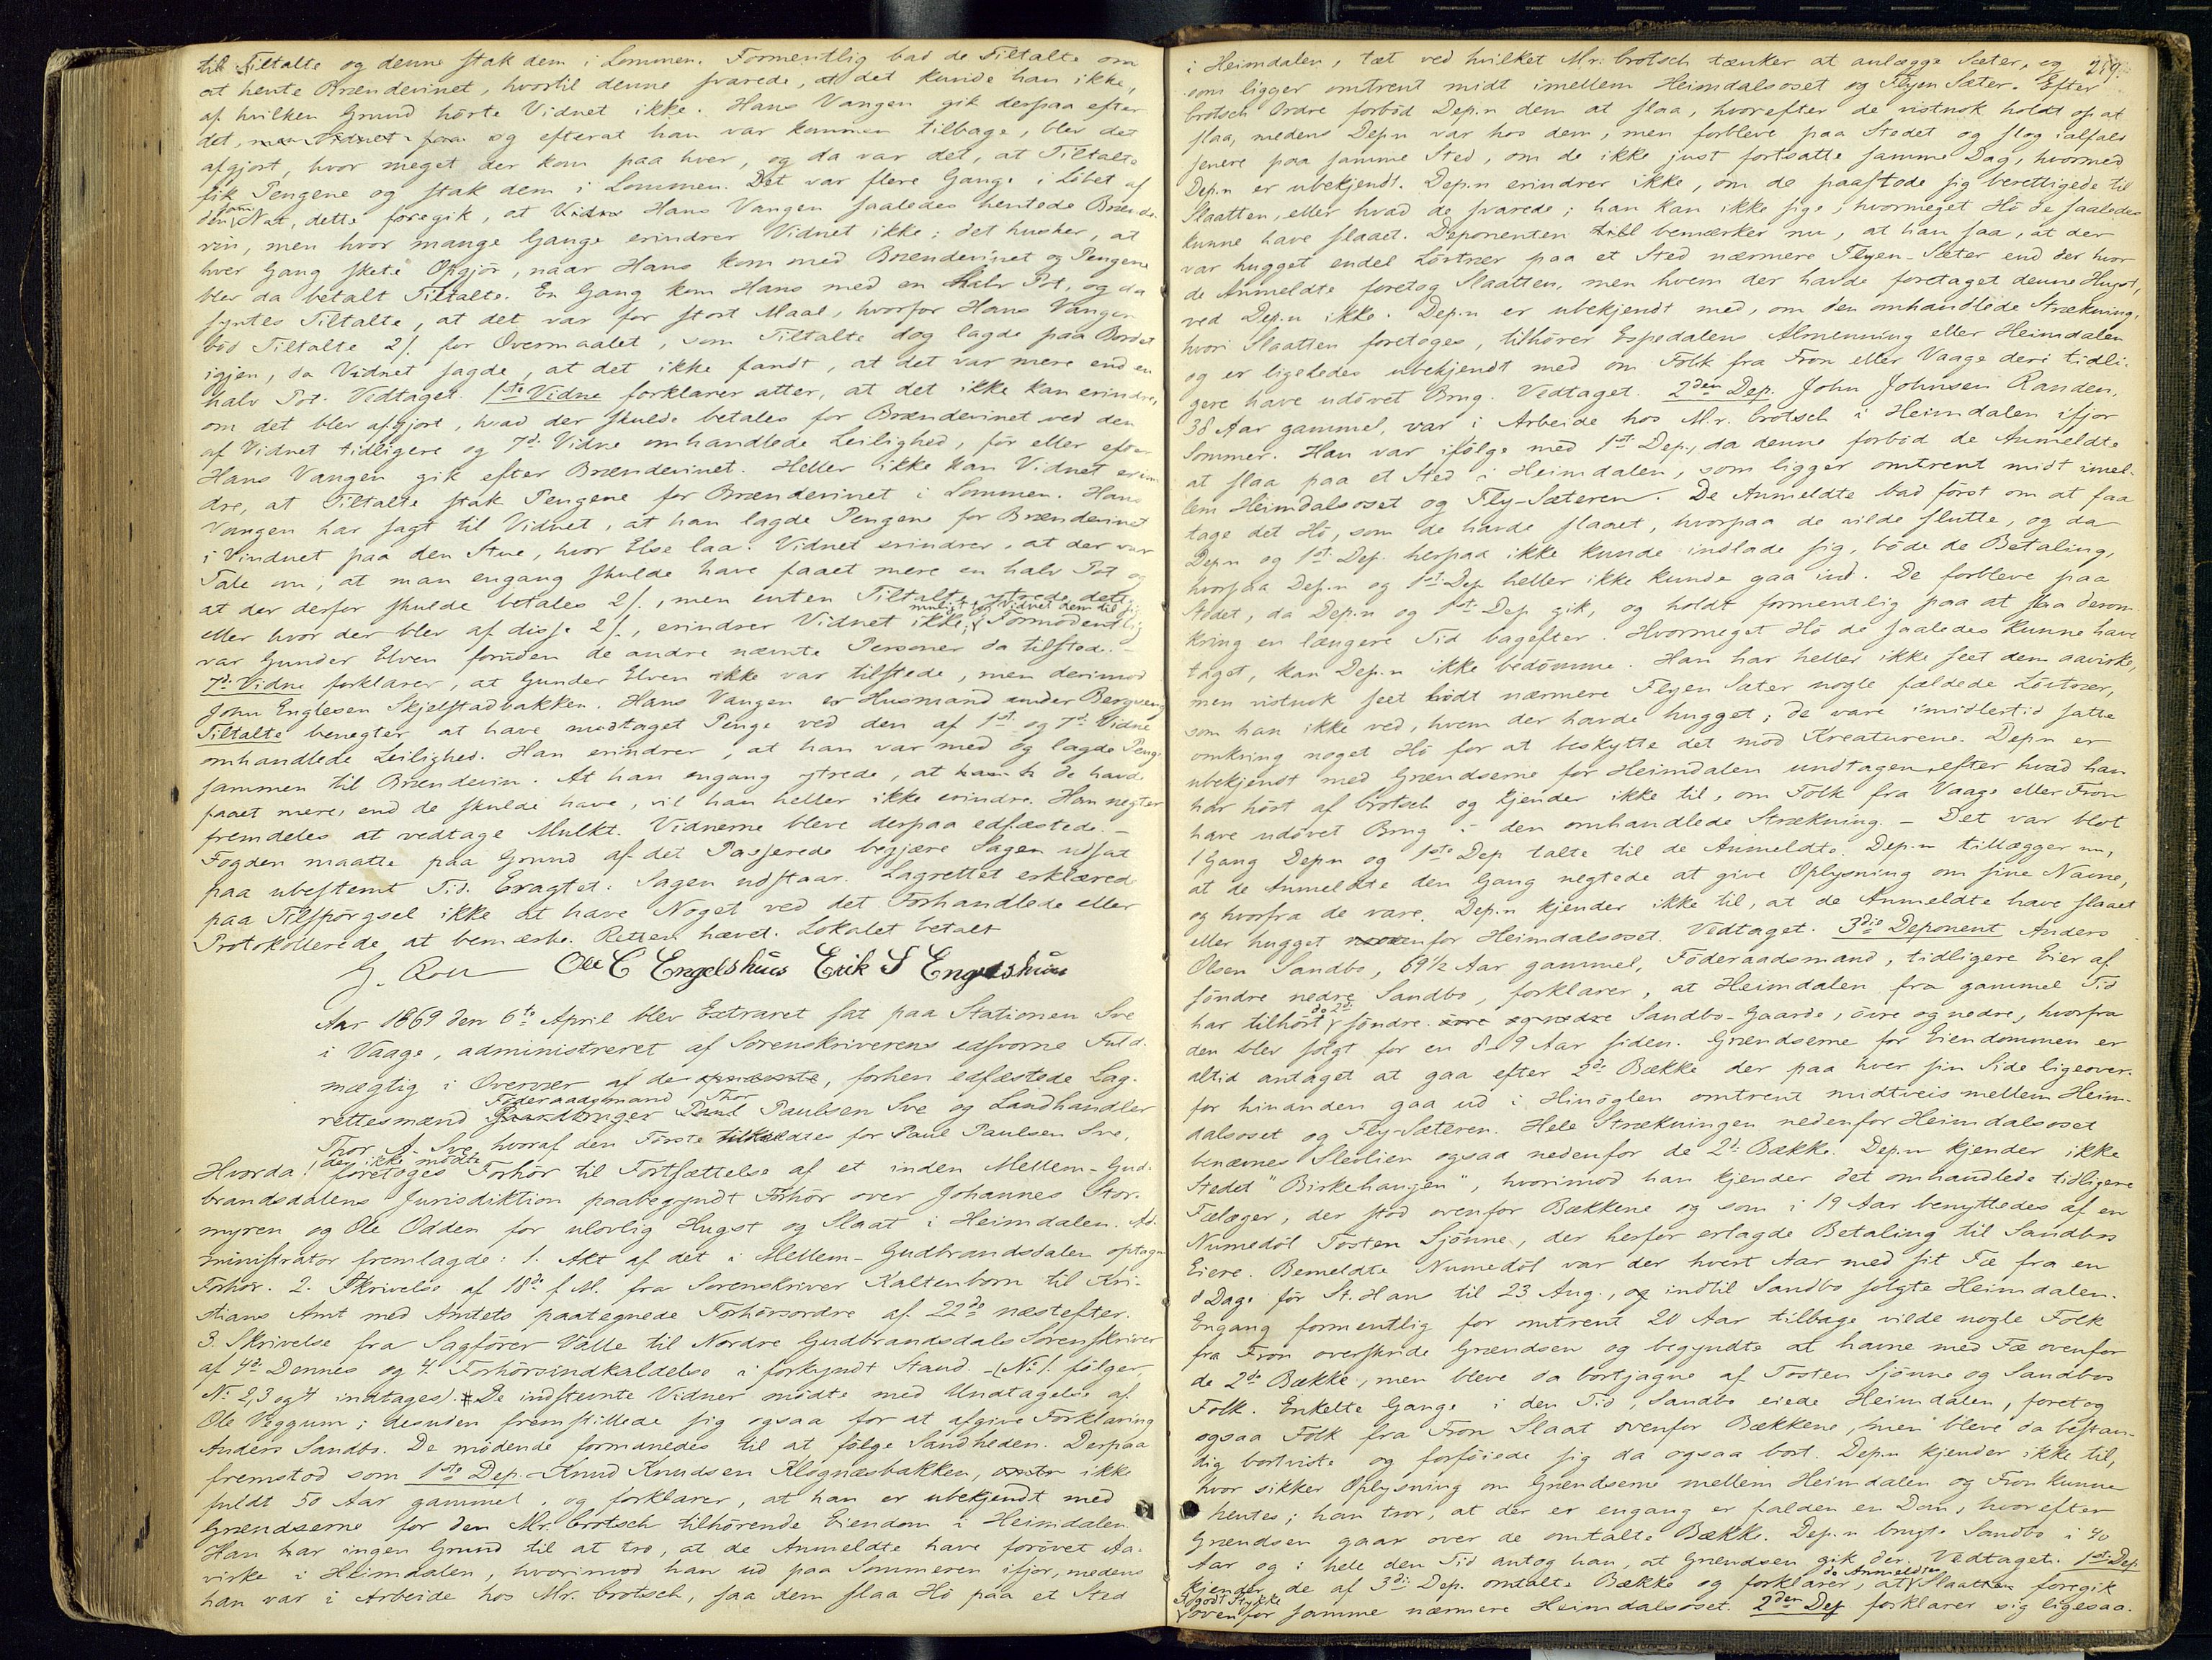 til Tiltalte og denne stak dem i Lommen. Formentlig bad de Tiltalte om
at hente Brændevinet, hvortil denne svarede, at det kunde han ikke,
af hvilken Grund hörte Vidnet ikke. Hans Vangen gik derpaa efter
det, og efterat han var kommen tilbage, blev det
afgjort, hvor meget der kom paa hver, og da var det, at Tiltalte
fik Pengene og stak dem i Lommen. Det var flere Gange i Löbet af
den Nat, dette foregik, at Hans Vangen saaledes hentede Brænde-
vin, men hvor mange Gange erindrer Vidnet ikke; det husker, at
hver Gang skete Opgjör, naar Hans kom med Brændevinet og Pengene
blev da betalt Tiltalte. En Gang kom Hans med en halv Pot, og da
syntes Tiltalte, at det var for stort Maal, hvorfor Hans Vangen
böd Tiltalte 2 s. for Overmaalet, som Tiltalte dog lagde paa Bordet
igjen, da Vidnet sagde, at det ikke fandt, at det var mere end en
halv Pot. Vedtaget. 1ste Vidne forklarer atter, at det ikke kan erindre,
om det blev afgjort, hvad der skulde betales for Brændevinet ved den
af Vidnet tidligere og 7de Vidne omhandlede Leilighed, för eller efter
Hans Vangen gik efter Brændevinet. Heller ikke kan Vidnet erin-
dre, at Tiltalte stak Pengene for Brændevinet i Lommen. Hans
Vangen har sagt til Vidnet, at han lagde Pengene for Brændevinet
i Vinduet paa den Stue, hvor Else laa. Vidnet erindrer, at der var
Tale om, at man engang skulde have faaet mere en halv Pot og
at der derfor skulde betales 2 s., men enten Tiltalte ytrede dette
muligt gav Vidnet dem til sig
eller hvor der blev af disse 2 s., erindrer Vidnet ikke; Formodentlig
var Gunder Elven foruden de andre nævnte Personer da tilstede. –
7de Vidne forklarer, at Gunder Elven ikke var tilstede, men derimod
John Englesen Skjelstadbakken. Hans Vangen er Husmand under Bergseng
Tiltalte benegter at have modtaget Penge ved den af 1ste og 7de Vidne
omhandlede Leilighed. Han erindrer, at han var med og lagde Penge
sammen til Brændevin. At han engang ytrede, at de havde
faaet mere, end de skulde have, vil han heller ikke erindre. Han negter
fremdeles at vedtage Mulkt. Vidnerne bleve derpaa edfæstede. –
Fogden maatte paa Grund af det Passerede begjære Sagen udsat
paa ubestemt Tid. Eragtet: Sagen udstaar. Lagrettet erklærede
paa Tilspörgsel ikke at have Noget ved det Forhandlede eller
Protokollerede at bemærke. Retten hævet. Lokalet betalt
Ole C Engelshus Erik S Engelshus
Aar 1869 den 6te April blev Extraret sat paa Stationen Sve
i Vaage, administreret af Sorenskriverens edsvorne Fuld-
mægtig i Overvær af de opnævnte, forhen edfæstede Lag-
Föderaadsmand Thor
rettesmænd Gaardbruger Paul Paulsen Sve og Landhandler
Thor A. Sve hvoraf den Förste tilkaldtes for Paul Paulsen Sve,
der ikke mödte
Hvorda foretoges Forhör til Fortsættelse af et inden Mellem-Gud-
brandsdalens Jurisdiktion paabegyndt Forhör over Johannes Stor-
myren og Ole Odden for ulovlig Hugst og Slaat i Heimdalen. Ad-
ministrator fremlagde: 1. Akt af det i Mellem-Gudbrandsdalen optagne
Forhör. 2. Skrivelse af 18de f. M. fra Sorenskriver Kaltenborn til Kri-
stians Amt med Amtets paategnede Forhörsordre af 22de næstefter.
3. Skrivelse fra Sagförer Valle til Nordre Gudbrandsdals Sorenskriver
af 4de Dennes og 4. Forhörsindkaldelse i forkyndt Stand. (No. 1. fölger,
No. 2, 3 og 4 indtages). De indstevnte Vidner mödte med Undtagelse af
Ole Veggum; desuden fremstillede sig ogsaa for at afgive Forklaring
Anders Sandbo. De mödende formanedes til at fölge Sandheden. Derpaa
fremstod som 1ste Dep. Knud Knudsen Klognæsbakken, ikke
fuldt 50 Aar gammel, og forklarer, at han er ubekjendt med
Grændserne for den Mr. Crotsch tilhörende Eiendom i Heimdalen.
Han har ingen Grund til at tro, at de Anmeldte have forövet Aa-
virke i Heimdalen, hvorimod han ud paa Sommeren ifjor, medens
han var i Arbeide hos Mr. Crotsch, saa dem slaa Hö paa et Sted
219.
i Heimdalen, tæt ved hvilket Mr. Crotsch tænker at anlægge Sæter, og
som ligger omtrent midt imellem Heimdalsoset og Flyen Sæter. Efter
Crotsch Ordre forböd Dep.n dem at slaa, hvorefter de vistnok holdt op at
slaa, medens Dep.n var hos dem, men forbleve paa Stedet og slog ialfald
senere paa samme Sted, om de ikke just fortsatte samme Dag, hvormed
Dep.n er ubekjendt. Dep.n erindrer ikke, om de paastode sig berettigede til
Slaatten, eller hvad de svarede; han kan ikke sige, hvormeget Hö de saaledes
kunne have slaaet. Deponenten bemærker nu, at han saa, at der
var hugget endel Lövtrær paa et Sted nærmere Flyen-Sæter end der hvor
de Anmeldte foretog Slaatten, men hvem der havde foretaget denne Hugst,
ved Dep.n ikke. Dep.n er ubekjendt med, om den omhandlede Strækning,
hvori Slaatten foretoges, tilhörer Espedalens Almenning eller Heimdalen
og er ligeledes ubekjendt med om Folk fra Fron eller Vaage deri tidli-
gere have udövet Brug. Vedtaget. 2den Dep. John Johnsen Randen,
38 Aar gammel, var i Arbeide hos Mr. Crotsch i Heimdalen ifjor
Sommer. Han var ifölge med 1ste Dep., da denne forböd de Anmeldte
at slaa paa et Sted i Heimdalen, som ligger omtrent midt imel-
lem Heimdalsoset og Fly-Sæteren. De Anmeldte bad först om at faa
tage det Hö, som de havde slaaet, hvorpaa de vilde slutte, og da
Dep.n og 1ste Dep. herpaa ikke kunde indlade sig, böde de Betaling,
hvorpaa Dep.n og 1ste Dep heller ikke kunde gaa ind. De forbleve paa
Stedet, da Dep.n og 1ste Dep gik, og holdt formentlig paa at slaa derom-
kring en længere Tid bagefter. Hvormeget Hö de saaledes kunne have
taget, kan Dep.n ikke bedömme. Han har heller ikke seet dem aavirke,
men vistnok seet lidt nærmere Flyen Sæter nogle fældede Lövtrær,
som han ikke ved, hvem der havde hugget; de vare imidlertid satte
omkring noget Hö for at beskytte det mod Kreaturene. Dep.n er
ubekjendt med Grændserne for Heimdalen undtagen efter hvad han
har hört af Crotsch og kjender ikke til, om Folk fra Vaage eller Fron
have udövet Brug i den omhandlede Strækning. – Det var blot
1 Gang Dep.n og 1ste Dep talte til de Anmeldte. Dep.n tillægger nu,
at de Anmeldte den Gang negtede at give Oplysning om sine Navne,
og hvorfra de vare. Dep.n kjender ikke til, at de Anmeldte have slaaet
eller hugget nedenfor Heimdalsoset. Vedtaget. 3die Deponent Anders
Olsen Sandbo, 69½ Aar gammel, Föderaadsmand, tidligere Eier af
söndre nedre Sandbo, forklarer, at Heimdalen fra gammel Tid
de 2de
har tilhört söndre övre og nedre Sandbo-Gaarde, övre og nedre, hvorfra
den blev solgt for en 8 à 9 Aar siden. Grændserne for Eiendommen er
altid antaget at gaa efter 2de Bække der paa hver sin Side ligeover-
for hinanden gaa ud i Hinöglen omtrent midtveis mellem Heim-
dalsoset og Fly-Sæteren. Hele Strækningen nedenfor Heimdalsoset
benævnes Sledlien ogsaa nedenfor de 2de Bække. Dep.n kjender ikke
Stedet "Birkehaugen", hvorimod han kjender det omhandlede tidligere
Fælæger, der stod ovenfor Bækkene og som i 19 Aar benyttedes af en
Numedöl Tosten Sjönne, der herfor erlagde Betaling til Sandbos
Eiere. Bemeldte Numedöl var der hvert Aar med sit Fæ fra en
8 Dage för St. Hans til 23 Aug., og indtil Sandbo solgte Heimdalen.
Engang formentlig for omtrent 20 Aar tilbage vilde nogle Folk
fra Fron overskride Grændsen og begyndte at havne med Fæ ovenfor
de 2de Bække, men bleve da bortjagne af Tosten Sjönne og Sandbos
Folk. Enkelte Gange i den Tid, Sandbo eiede Heimdalen, foretog
ogsaa Folk fra Fron Slaat ovenfor Bækkene, men bleve da bestan-
dig bortviste og forföiede sig da ogsaa bort. Dep.n kjender ikke til,
hvor sikker Oplysning om Grændserne mellem Heimdalen og Fron kunne
hentes; han tror, at der er engang er falden en Dom, hvorefter
Grændsen gaar over de omtalte Bække. Dep.n brugte Sandbo i 40
Aar og i hele den Tid antog han, at Grændsen gik der. Vedtaget. 1ste Dep
de Anmeldtes
kjender de af 3die Dep. omtalte Bække og forklarer, at Slaatten foregik
et godt Stykke
ovenfor samme nærmere Heimdalsoset. 2den Dep forklarer sig ligesaa.